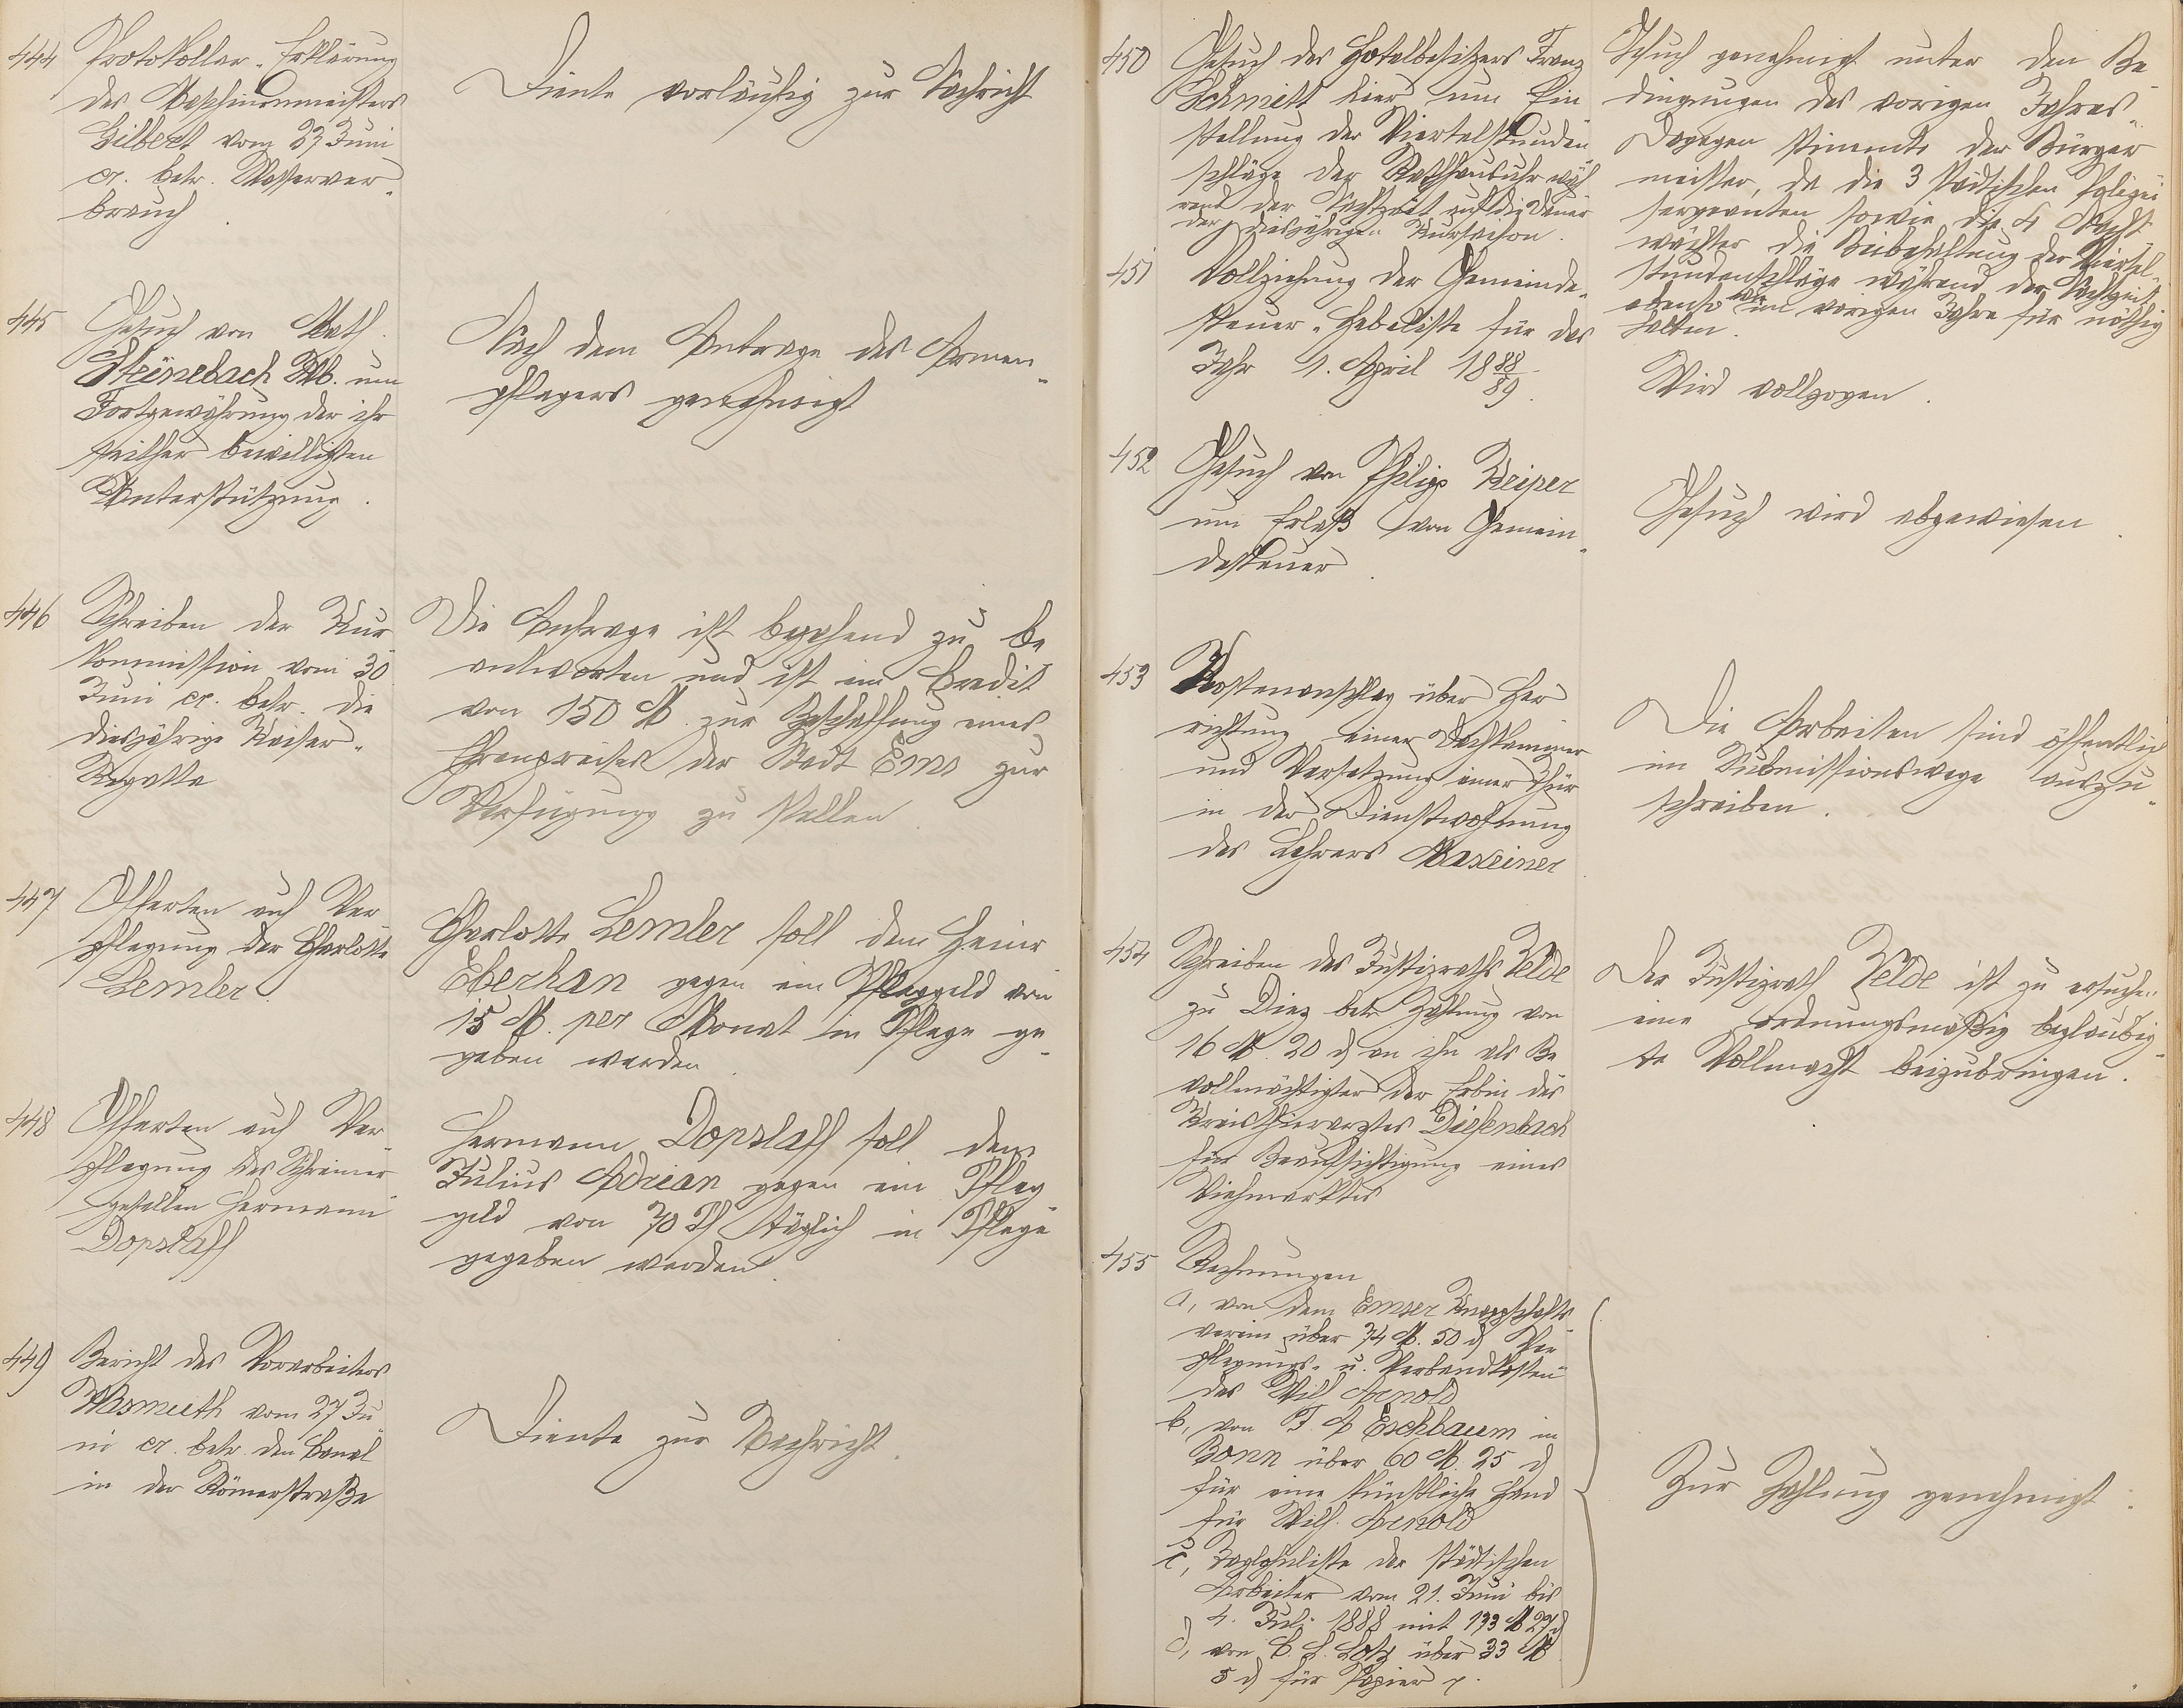 444
Protokollar-Erklärung
des Maschinenmeisters
Hilbert vom 23 Juni
cr. betr. Wasserver-
brauch.
Diente vorläufig zur Nachricht
445
Gesuch von Math.
Steinebach Wb. um
Fortgewährung der ihr
seither bewilligten
Unterstützung.
Nach dem Antrage des Armen-
pflegers genehmigt
446
Schreiben der Kur
kommission vom 30
Juni cr. betr. die
diesjährige Kaiser-
Regatta
Die Anfrage ist bejahend zu be
antworten und ist ein Credit
von 150 M. zur Beschaffung eines
Ehrenpreises der Stadt Ems zur
Verfügung zu stellen.
447
Offerten auf Ver
pflegung der Charlotte
Lemler.
Charlotte Lemler soll dem Heinr
Eberhan gegen ein Pfleggeld von
15 M. per Monat in Pflege ge-
geben werden.
448
Offerten auf Ver-
pflegung des Schreiner
gesellen Hermann
Dopslaff
Hermann Dopslaff soll dem
Julius Adrian gegen ein Pfleg
geld von 70 Pf täglich in Pflege
gegeben werden.
449
Bericht des Vorarbeiters
Wismeth vom 27 Ju-
ni cr. betr. den Canal
in der Römerstraße
Diente zur Nachricht.
450
Gesuch des Hotelbesitzers Franz
Schmitt hier um Ein
stellung der Viertelstunden
schläge der Rathhausuhr wäh
rend der Nachtzeit auf die Dauer
der diesjährigen Kursaison.
Gesuch genehmigt unter den Be-
dingungen des vorigen Jahres.
Dagegen stimmte der Bürger
meister, da die 3 städtischen Polizei
sergeanten sowie die 4 Nacht
wächter die Beibehaltung der Viertel-
stundenschläge während der Nachtzeit
ebenso wie im vorigen Jahre für nöthig
halten.
451
Vollziehung der Gemeinde-
steuer-Hebeliste für das
Jahr 1. April 1888/89.
Wird vollzogen.
452
Gesuch von Philipp Keiper
um Erlaß von Gemein-
desteuer.
Gesuch wird abgewiesen.
453
Kostenanschlag über Her
richtung einer Dachkammer
und Versetzung einer Thür
in der Dienstwohnung
des Lehrers Maxeiner
Die Arbeiten sind öffentlich
im Submissionswege auszu-
schreiben.
454
Schreiben des Justizraths Velde
zu Diez betr. Zahlung von
16 M. 20 d an ihn als Be
vollmächtigter der Erbin des
Kreisthierarztes Diefenbach
für Beaufsichtigung eines
Viehmarktes
Der Justizrath Velde ist zu ersuchen
eine ordnungsmäßig beglaubig-
te Vollmacht beizubringen.
455
Rechnungen
a, von dem Emser Knappschafts-
verein über 74 M. 50 d Ver-
pflegungs- u. Verbandkosten
des Wilh Arnold
b, von F. A Eschbaum in
Bonn über 60 M. 25 d
für eine künstliche Hand
für Wilh. Arnold
c, Taglohnliste der städtischen
Arbeiter vom 21. Juni bis
4. Juli 1888 mit 133 M 27 d
d, von C. L. Lotz über 33 M
5 d für Papier
Zur Zahlung genehmigt.